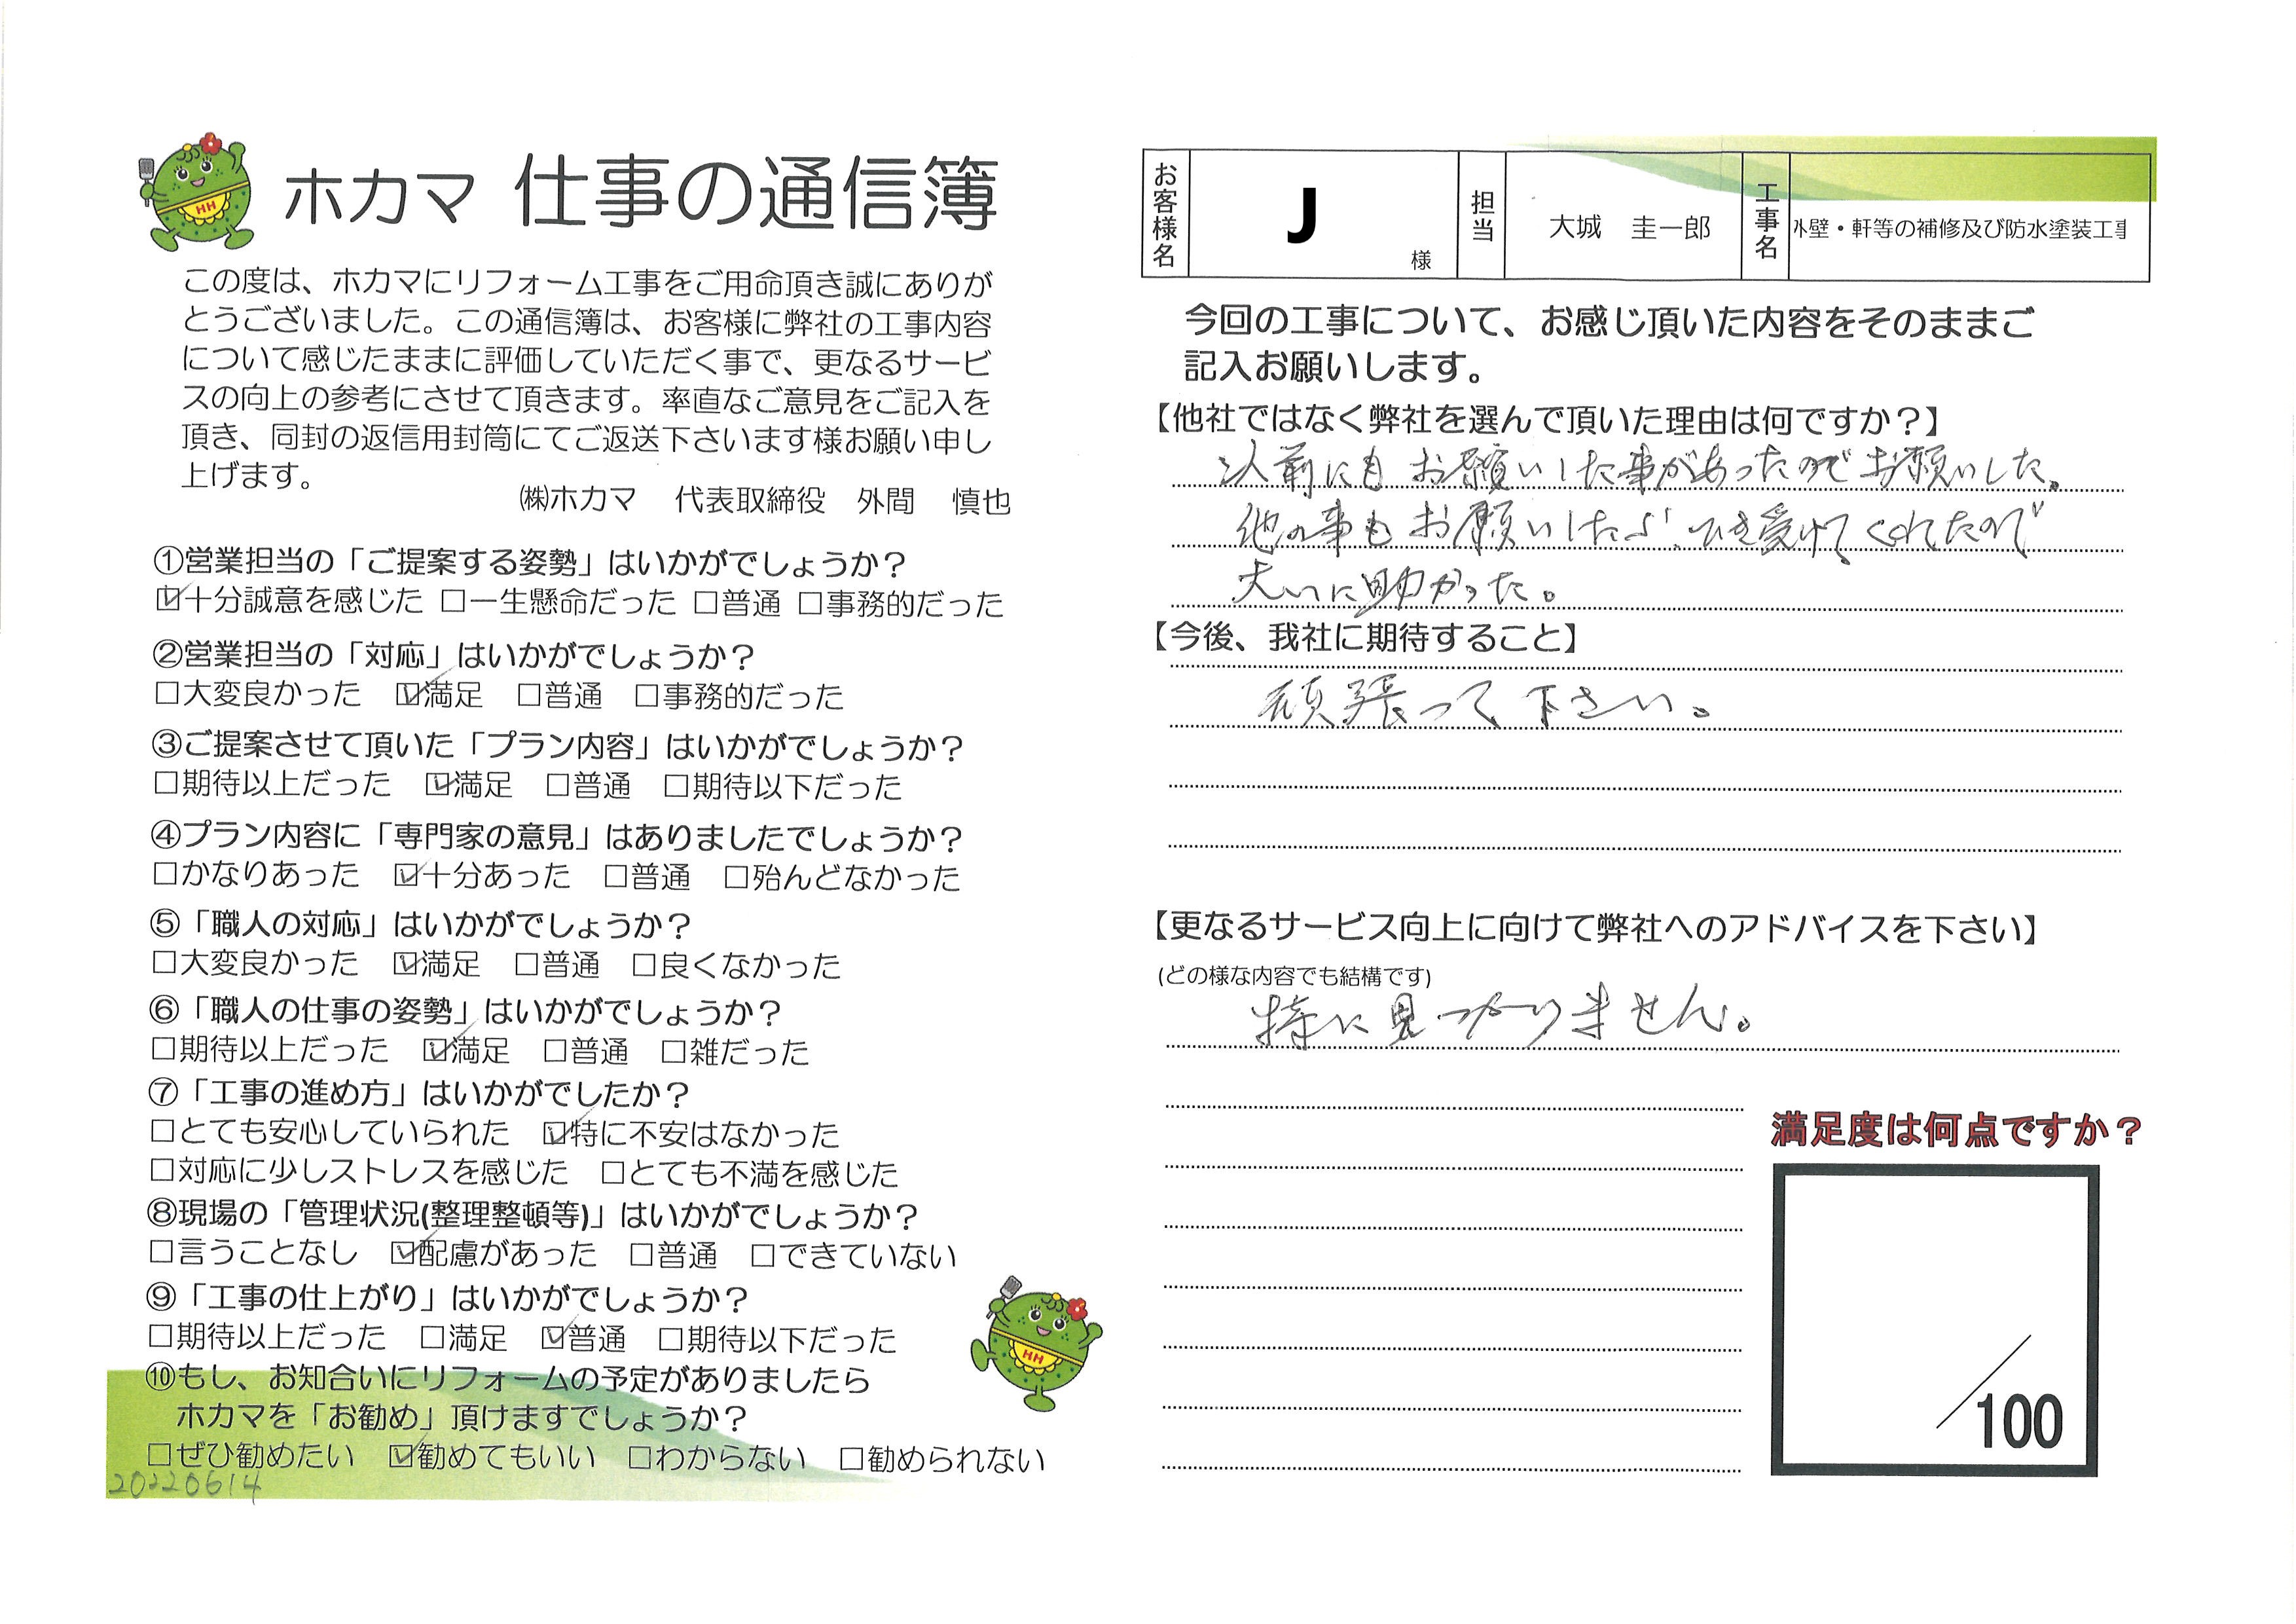 ホカマ 仕事の通信簿
この度は、ホカマにリフォーム工事をご用命頂き誠にありが
とうございました。この通信簿は、お客様に弊社の工事内容
について感じたままに評価していただく事で、更なるサービ
スの向上の参考にさせて頂きます。率直なご意見をご記入を
頂き、同封の返信用封筒にてご返送下さいます様お願い申し
上げます。
㈱ホカマ 代表取締役 外間 慎也
①営業担当の「ご提案する姿勢」はいかがでしょうか？
☑十分誠意を感じた □一生懸命だった □普通 □事務的だった
②営業担当の「対応」はいかがでしょうか？
□大変良かった ☑満足 □普通 □事務的だった
③ご提案させて頂いた「プラン内容」はいかがでしょうか？
□期待以上だった ☑満足 □普通 □期待以下だった
④プラン内容に「専門家の意見」はありましたでしょうか？
□かなりあった ☑十分あった □普通 □殆んどなかった
⑤「職人の対応」はいかがでしょうか？
□大変良かった ☑満足 □普通 □良くなかった
⑥「職人の仕事の姿勢」はいかがでしょうか？
□期待以上だった ☑満足 □普通 □雑だった
⑦「工事の進め方」はいかがでしたか？
□とても安心していられた ☑特に不安はなかった
□対応に少しストレスを感じた □とても不満を感じた
⑧現場の「管理状況(整理整頓等)」はいかがでしょうか？
□言うことなし ☑配慮があった □普通 □できていない
⑨「工事の仕上がり」はいかがでしょうか？
□期待以上だった □満足 ☑普通 □期待以下だった
⑩もし、お知合いにリフォームの予定がありましたら
ホカマを「お勧め」頂けますでしょうか？
□ぜひ勧めたい ☑勧めてもいい □わからない □勧められない
20220614
HH
HH
お客様名 J 様 担当 大城 圭一郎 工事名 外壁・軒等の補修及び防水塗装工事
今回の工事について、お感じ頂いた内容をそのままご
記入お願いします。
【他社ではなく弊社を選んで頂いた理由は何ですか？】
以前にもお願いした事があったのでお願いした。
他の事もお願いしたが、ひき受けてくれたので
大いに助かった。
【今後、我社に期待すること】
頑張って下さい。
【更なるサービス向上に向けて弊社へのアドバイスを下さい】
(どの様な内容でも結構です)
特に見つかりません。
満足度は何点ですか？
／100